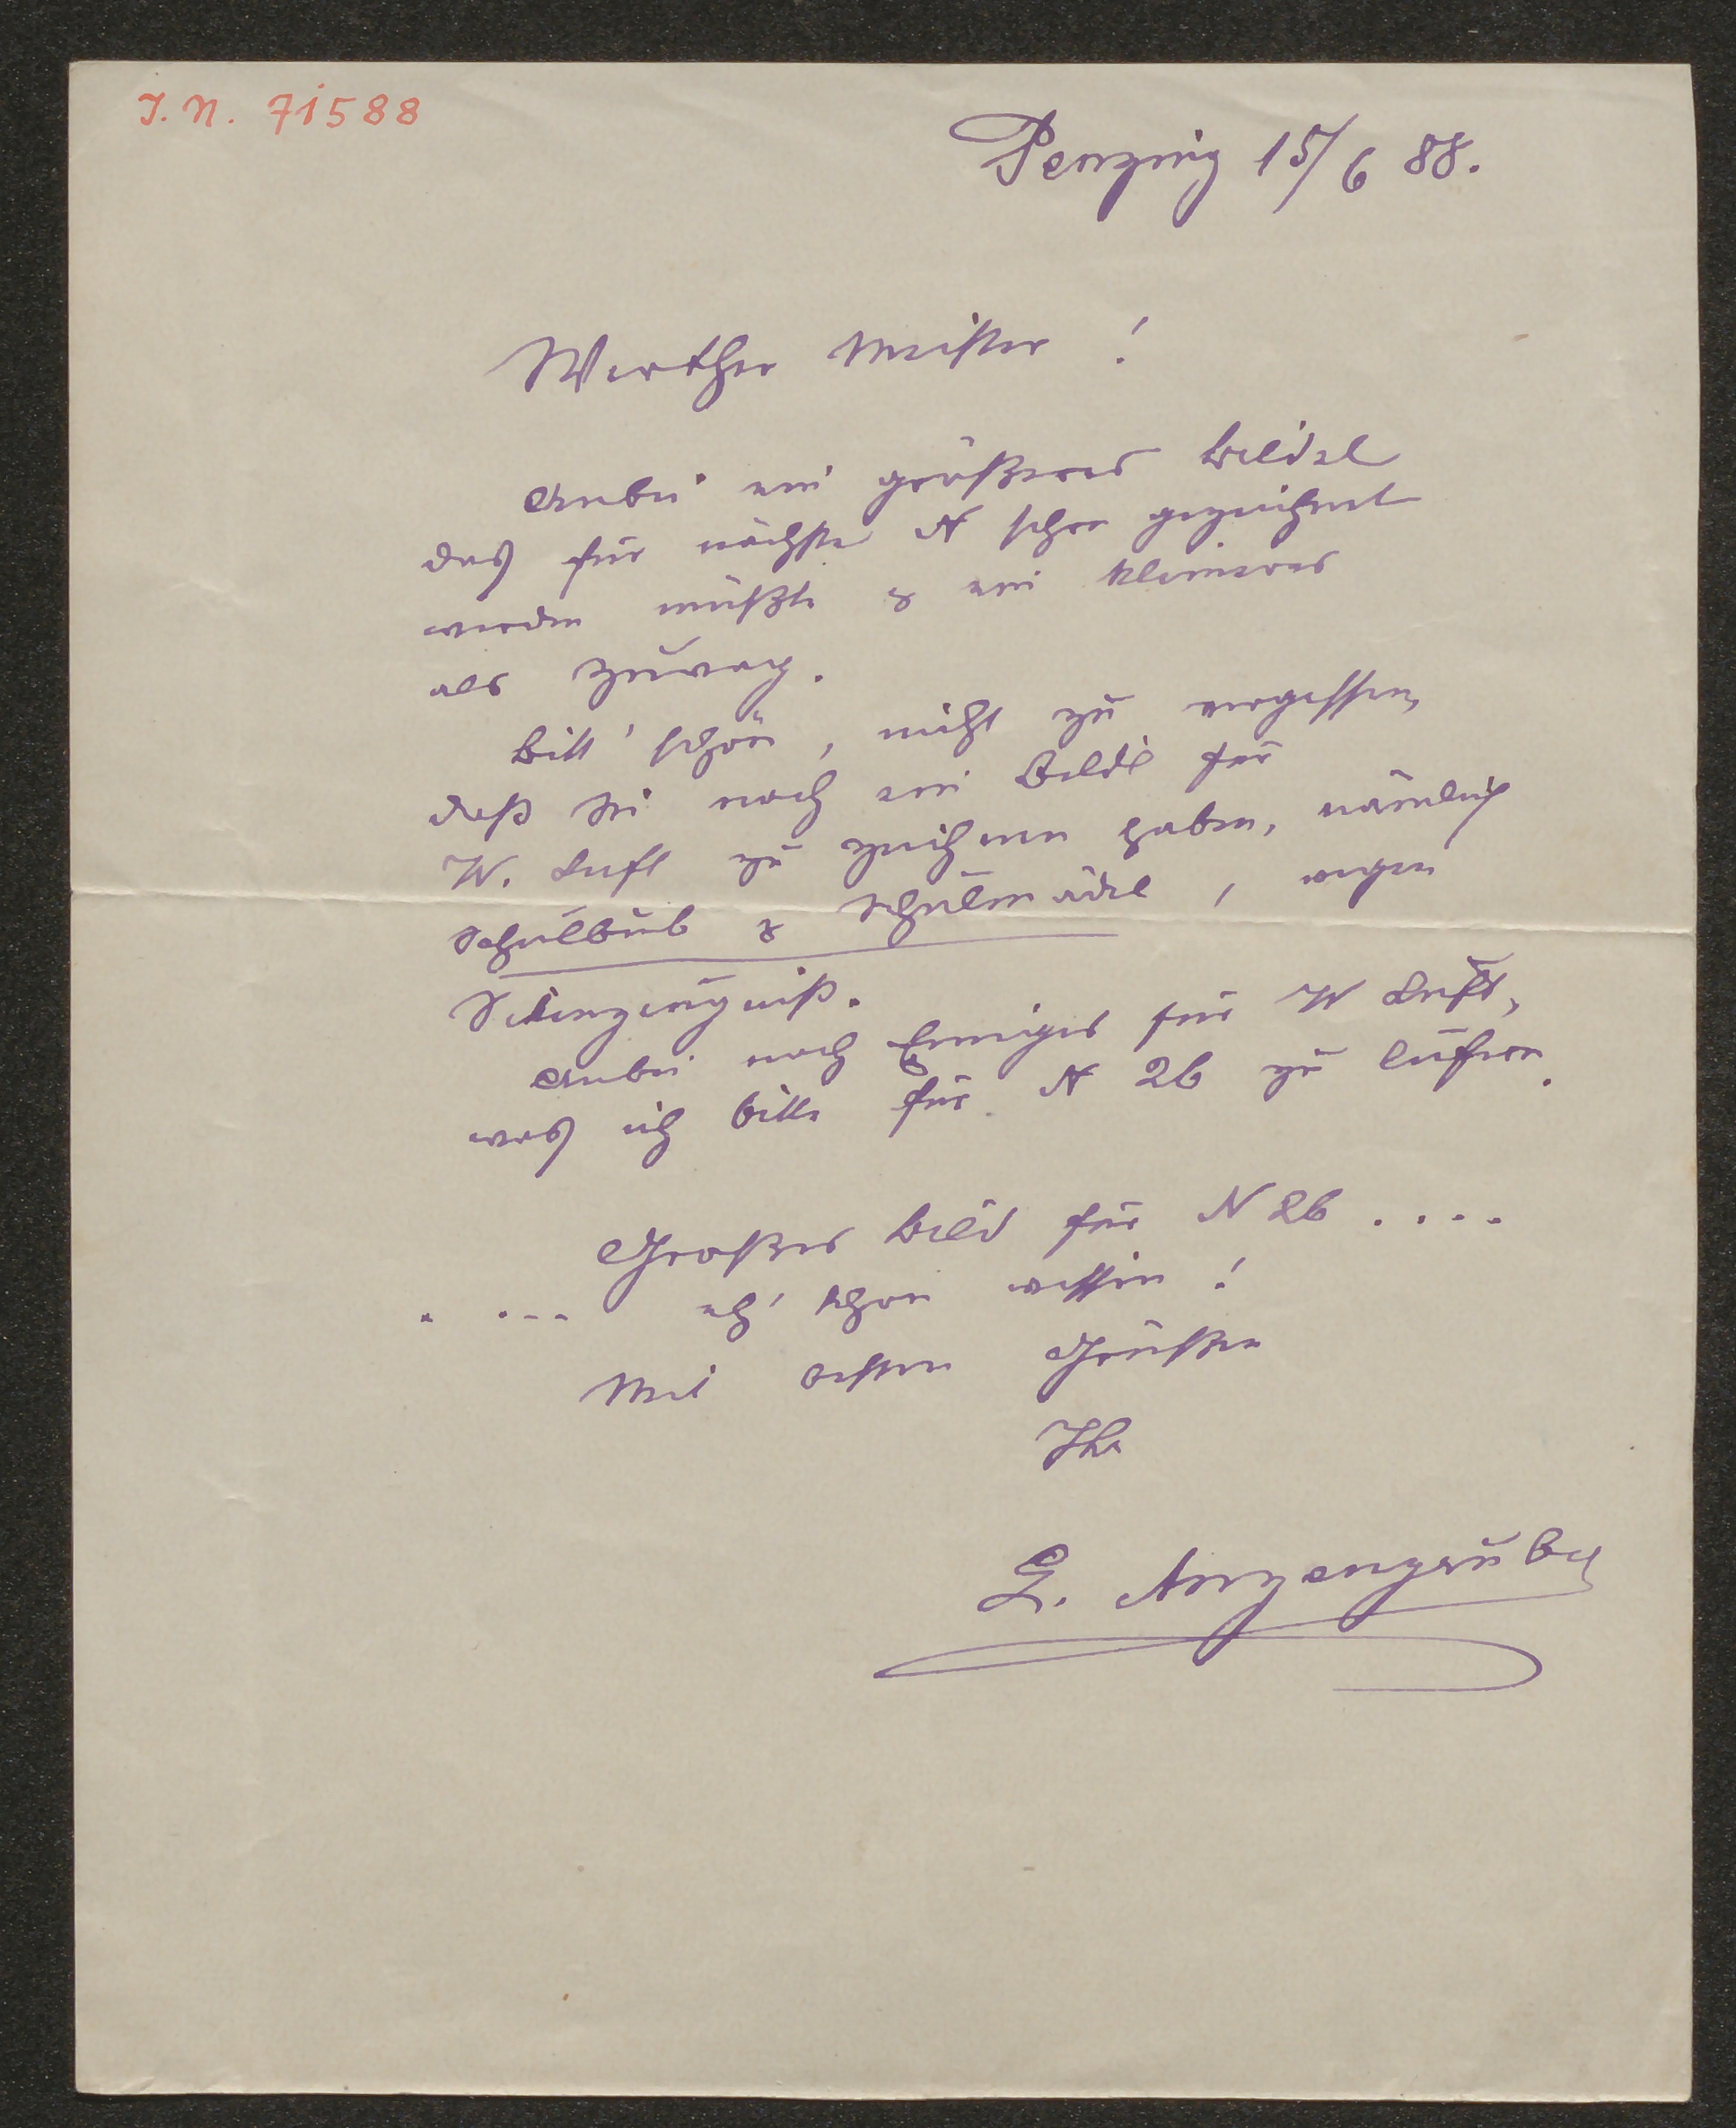 J. N. 71588
Penzing 15/6 88.
Werther Meister !
Anbei ein größeres Bildel
das für nächste N schon gezeichnet
werden müßte & ein kleineres
als Zuwag.
Bitt' schön, nicht zu vergessen,
daß Sie noch ein Bildl für
W. Luft zu zeichnen haben, nämlich
Schulbub & Schulmädel, wegen
Anbei noch Einiges für W Luft,
was ich bitte für N 26 zu liefern.
Großes Bild für N 26 . . . .
. ... eh' schon wissen !
Mit besten Grüßen
Ihr
L. Anzengruber